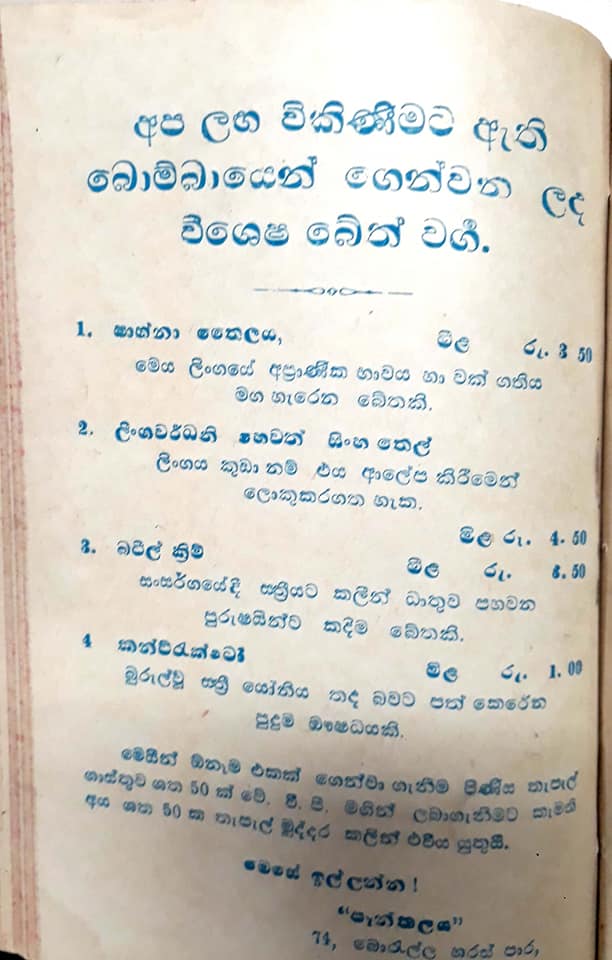 අප ලඟ විකිණීමට ඇති
බොම්බායෙන් ගෙන්වන ලද
විශෙෂ බේත් වර්ග.
1. ෂාග්නා තෛලය, මිල රු. 3 50
මෙය ලිංගයේ අප්‍රාණික භාවය හා වක් ගතිය
මග හැරෙන බේතකි.
2. ලිංගවර්ධනි හෙවත් සිංහ තෙල්
ලිංගය කුඩා නම් එය ආලේප කිරීමෙන්
ලොකුකරගත හැක.
මිල රු. 4. 50
3. බජිල් ක්‍රිම් මිල රු. 50
සංසර්ගයේදී ස්‍ත්‍රීයට කලින් ධාතුව පහවන
පුරුෂයින්ට කදිම බේතකි.
4 මිල රු. 1. 00
බුරුල්වූ ස්‍ත්‍රී යෝනිය තද බවට පත් කෙරෙන
පුදුම ඖෂධයකි.
මෙයින් ඕනෑම එකක් ගෙන්වා ගැනීම පිණිස තැපැල්
ගාස්තුව ශත 50 ක් වේ. වී. පී. මගින් ලබාගැනීමට කැමති
අය ශත 50 ක තැපැල් මුද්දර කලින් එවිය යුතුයි.
මෙසේ ඉල්ලන්න !
74, බොරැල්ල හරස් පාර,